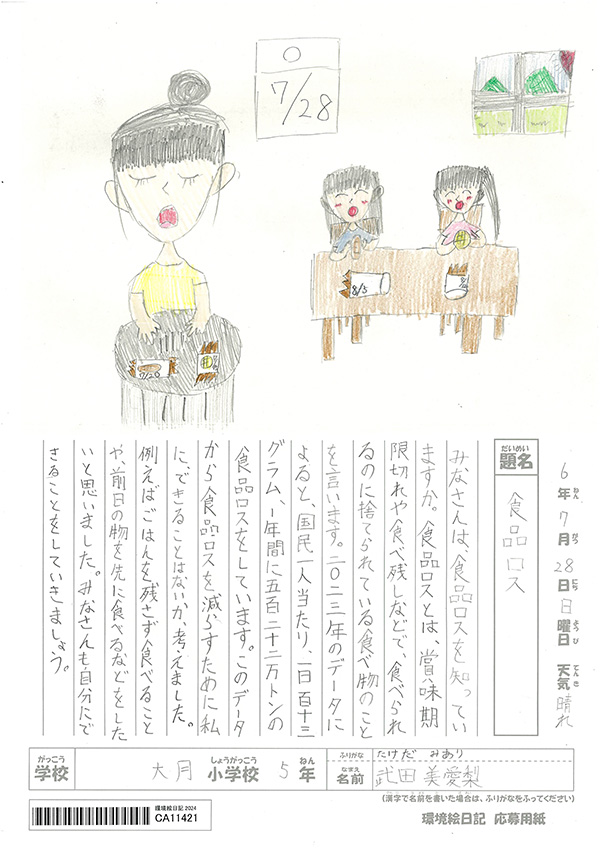 7/28
8/5
7/28
6年7月28日日曜日 天気晴れ
ねん がつ にち ようび てんき
だいめい
題名
食品ロス
みなさんは、食品ロスを知ってい
ますか。食品ロスとは、賞味期
限切れや食べ残しなどで、食べられ
るのに捨てられている食べ物のこと
を言います。二〇二三年のデータに
よると、国民一人当たり、一日百十三
グラム、一年間に五百二十二万トンの
食品ロスをしています。このデータ
から食品ロスを減らすために私
に、できることはないか、考えました。
例えばごはんを残さず食べること
や、前日の物を先に食べるなどをした
いと思いました。みなさんも自分にで
きることをしていきましょう。
がっこう しょうがっこう ねん
学校 大月 小学校 5年
ふりがな たけだ みあり
なまえ
名前 武田 美愛梨
(漢字で名前を書いた場合は、ふりがなをふってください)
環境絵日記 2024
CA11421
環境絵日記 応募用紙